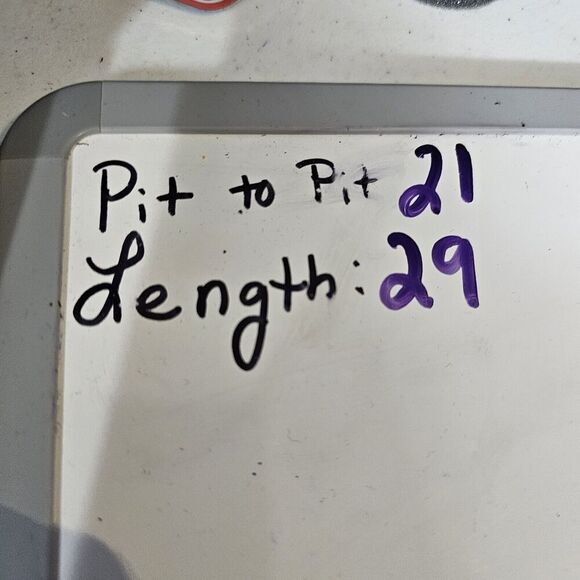 Pit to Pit 21
Length: 29